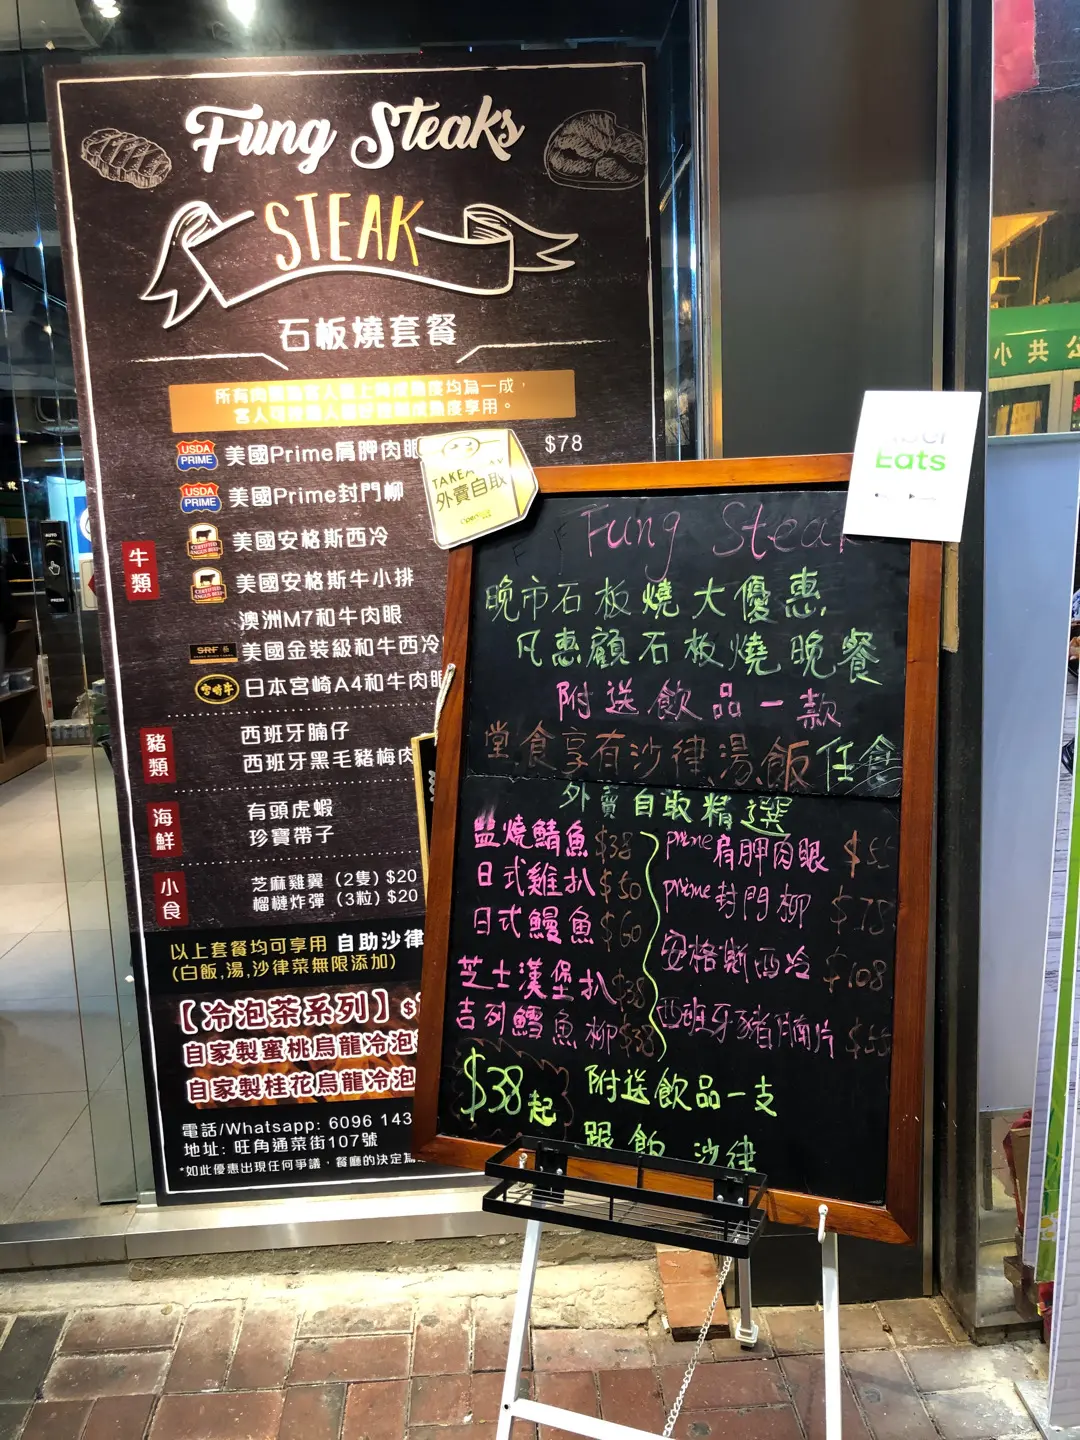 Fung Steaks
STEAK
石板燒套餐
所有肉類
均為一成，
享用。
牛類
USDA PRIME 美國Prime肩胛肉眼 $78
USDA PRIME 美國Prime封門柳
CERTIFIED ANGUS BEEF 美國安格斯西冷
CERTIFIED ANGUS BEEF 美國安格斯牛小排
澳洲M7和牛肉眼
SRF 美國金裝級和牛西冷
宮崎牛 日本宮崎A4和牛肉眼
豬類
西班牙腩仔
西班牙黑毛豬梅肉
海鮮
有頭虎蝦
珍寶帶子
小食
芝麻雞翼 (2隻) $20
榴槤炸彈 (3粒) $20
以上套餐均可享用 自助沙律
(白飯,湯,沙律菜無限添加)
【冷泡茶系列】$
自家製蜜桃烏龍冷泡
自家製桂花烏龍冷泡
電話/Whatsapp: 6096 143
地址: 旺角通菜街107號
*如此優惠出現任何爭議，餐廳的決定為
TAKEAWAY
外賣自取
Uber
Eats
Fung Steak
晚市石板燒大優惠
凡惠顧石板燒晚餐
附送飲品一款
堂食享有沙律,湯,飯任食
外賣自取精選
鹽燒鯖魚 $38
日式雞扒 $50
日式鰻魚 $60
芝士漢堡扒 $38
吉列鱈魚柳 $38
prime肩胛肉眼 $55
prime封門柳 $78
安格斯西冷 $108
西班牙豬腩片
$38起
附送飲品一支
跟飯 沙律
小共公